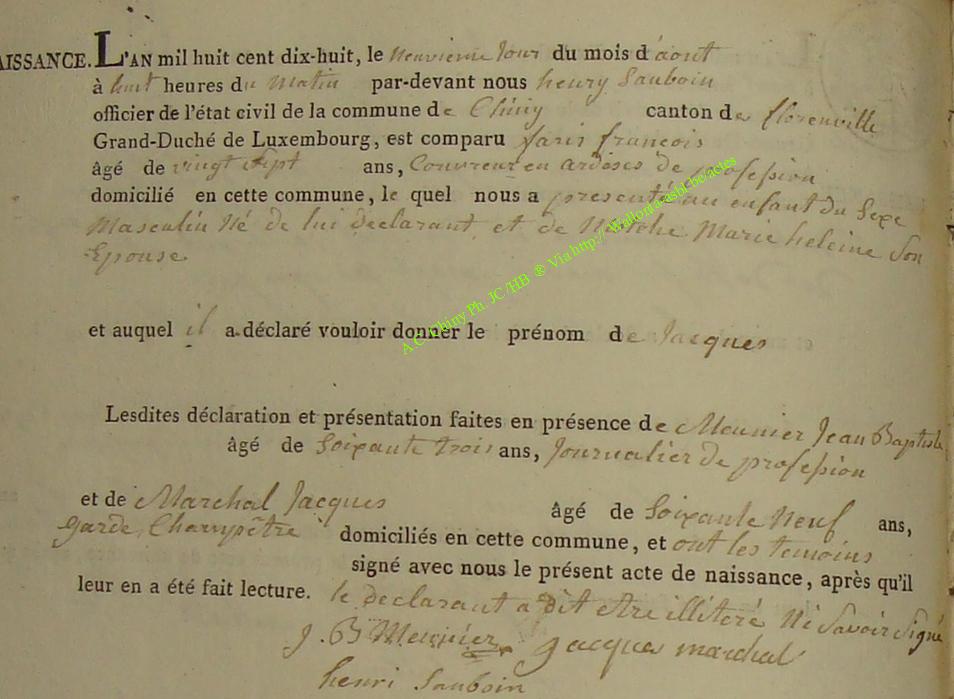 AISSANCE. L'AN mil huit cent dix-huit, le neuvieme Jour du mois d'aout
à huit heures du Matin par-devant nous henry Sauboin
officier de l'état civil de la commune de Chiny canton de florenville
Grand-Duché de Luxembourg, est comparu paris francois
âgé de vingt Sept ans, Couvreur en ardoises de profession
domicilié en cette commune, le quel nous a presenté un enfant du Sexe
Masculin Né de lui declarant et de Marie heleine Son
Epouse
et auquel il a déclaré vouloir donner le prénom de Jacques
Lesdites déclaration et présentation faites en présence de Meunier Jean Baptiste
âgé de Soixante trois ans, Journalier de profession
et de Marchal Jacques âgé de Soixante Neuf ans,
garde Champêtre domiciliés en cette commune, et ont les temoins
signé avec nous le présent acte de naissance, après qu'il
leur en a été fait lecture. le declarant a dit etre illiteré Ni Savoir Signé
J. B Meunier Jacques marchal
henri Sauboin
A.C. Chiny Ph. JC/HB ® Via http://Wallonia-asbl.be/actes